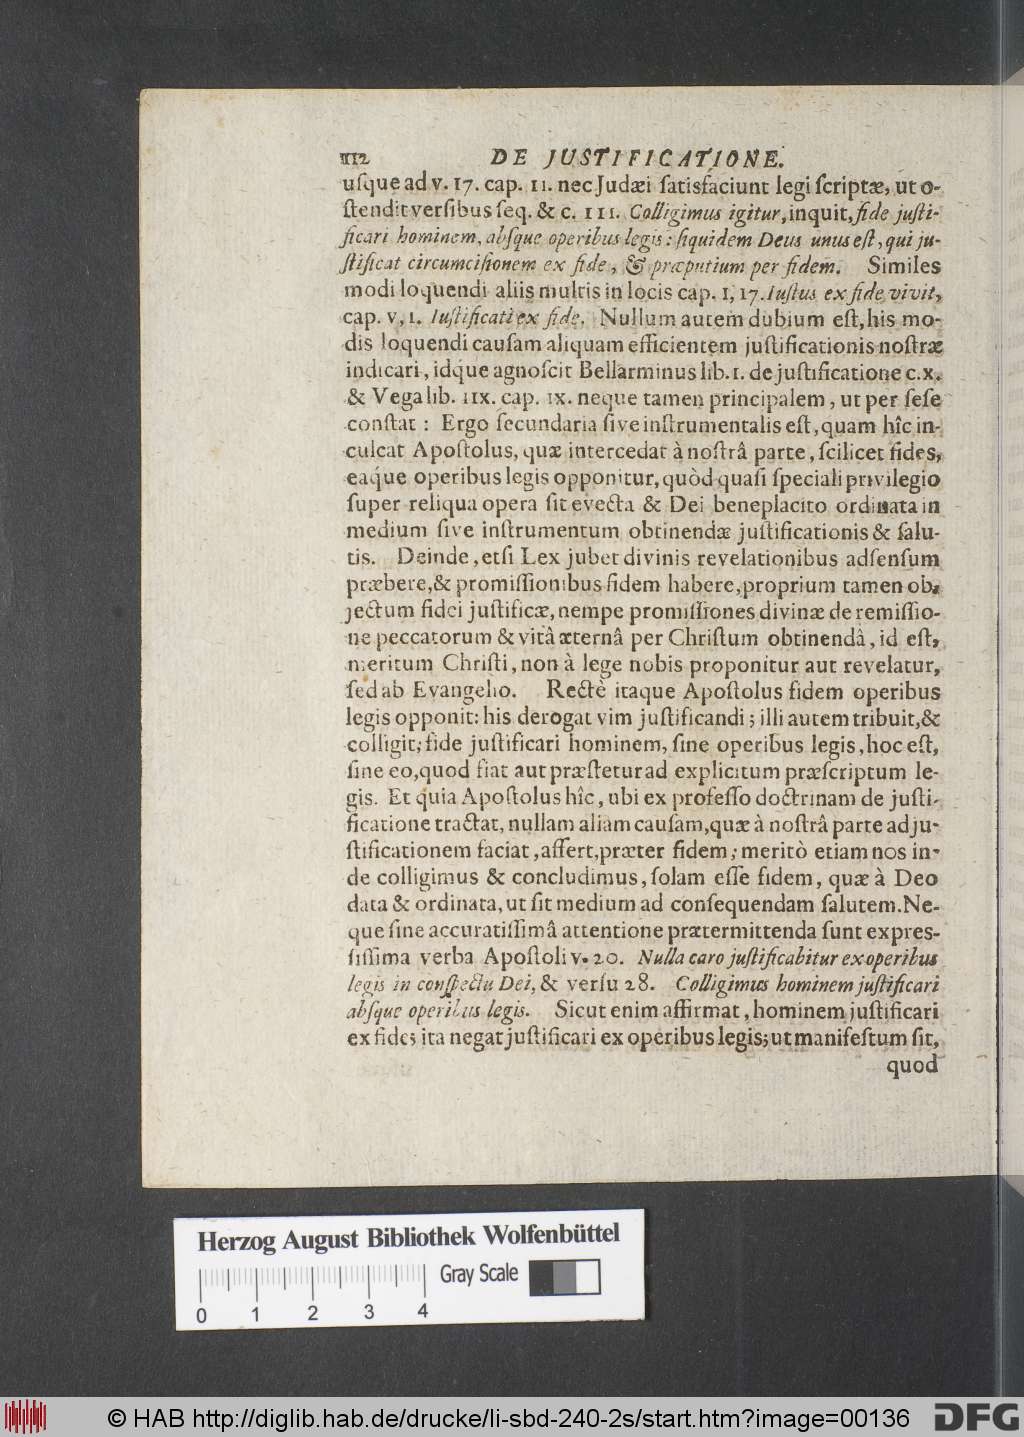 112 DE JUSTIFICATIONE.
uſque ad v. 17. cap. 11. nec Judæi ſatisfaciunt legi ſcriptæ, ut o-
ſtendit verſibus ſeq. & c. 111. Colligimus igitur, inquit, fide juſti-
ficari hominem, abſque operibus legis: ſiquidem Deus unus eſt, qui ju-
ſtificat circumciſionem ex fide, & præputium per fidem. Similes
modi loquendi aliis multis in locis cap. 1, 17. Iuſtus ex fide vivit,
cap. v, 1. Iuſtificati ex fide. Nullum autem dubium eſt, his mo-
dis loquendi cauſam aliquam efficientem juſtificationis noſtræ
indicari, idque agnoſcit Bellarminus lib. 1. de juſtificatione c. x.
& Vega lib. 11x. cap. 1x. neque tamen principalem, ut per ſeſe
conſtat: Ergo ſecundaria ſive inſtrumentalis eſt, quam hîc in-
culcat Apoſtolus, quæ intercedat à noſtrâ parte, ſcilicet fides,
eaque operibus legis opponitur, quòd quaſi ſpeciali privilegio
ſuper reliqua opera ſit evecta & Dei beneplacito ordinata in
medium ſive inſtrumentum obtinendæ juſtificationis & ſalu-
tis. Deinde, etſi Lex jubet divinis revelationibus adſenſum
præbere, & promiſſionibus fidem habere, proprium tamen ob-
jectum fidei juſtificæ, nempe promiſſiones divinæ de remiſſio-
ne peccatorum & vitâ æternâ per Chriſtum obtinendâ, id eſt,
meritum Chriſti, non à lege nobis proponitur aut revelatur,
ſed ab Evangelio. Rectè itaque Apoſtolus fidem operibus
legis opponit: his derogat vim juſtificandi; illi autem tribuit, &
colligit; fide juſtificari hominem, ſine operibus legis, hoc eſt,
ſine eo, quod fiat aut præſtetur ad explicitum præſcriptum le-
gis. Et quia Apoſtolus hîc, ubi ex profeſſo doctrinam de juſti-
ficatione tractat, nullam aliam cauſam, quæ à noſtrâ parte ad ju-
ſtificationem faciat, affert, præter fidem; meritò etiam nos in-
de colligimus & concludimus, ſolam eſſe fidem, quæ à Deo
data & ordinata, ut ſit medium ad conſequendam ſalutem. Ne-
que ſine accuratiſſimâ attentione prætermittenda ſunt expreſ-
ſiſſima verba Apoſtoli v. 20. Nulla caro juſtificabitur ex operibus
legis in conſpectu Dei, & verſu 28. Colligimus hominem juſtificari
abſque operibus legis. Sicut enim affirmat, hominem juſtificari
ex fide; ita negat juſtificari ex operibus legis; ut manifeſtum ſit,
quod
Herzog August Bibliothek Wolfenbüttel
Gray Scale
0 1 2 3 4
© HAB http://diglib.hab.de/drucke/li-sbd-240-2s/start.htm?image=00136 DFG